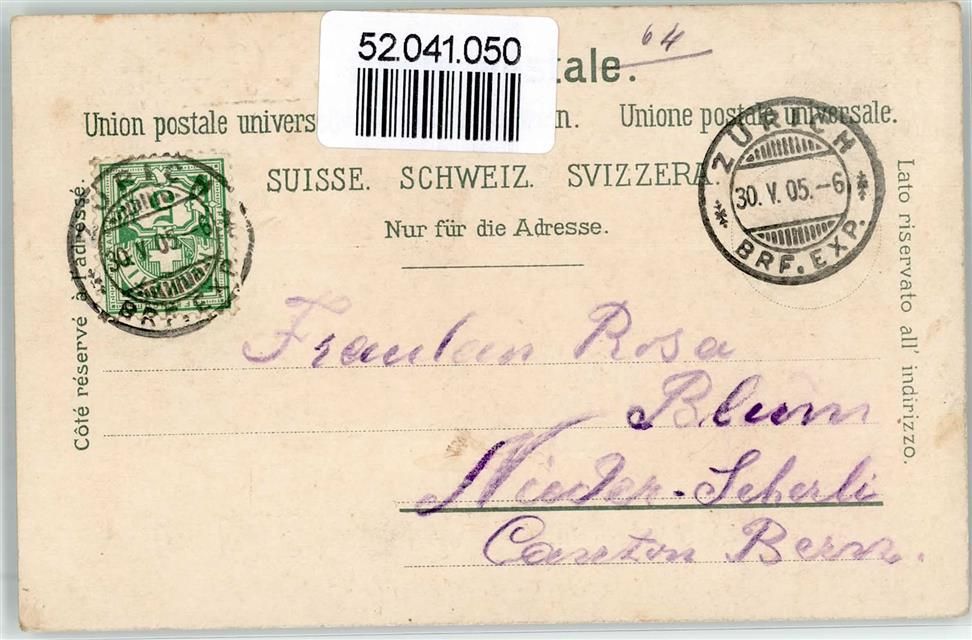 52.041.050
64
tale.
Union postale univers n. Unione postale universale.
SUISSE. SCHWEIZ. SVIZZERA.
Nur für die Adresse.
Côté réservé à l'adresse.
Lato riservato all' indirizzo.
ZÜRICH
30. V. 05. - 6
BRF. EXP.
ZÜRICH
30. V. 05. - 6
BRF. EXP.
5
Fraulein Rosa
Blum
Nieder-Scherli
Canton Bern.